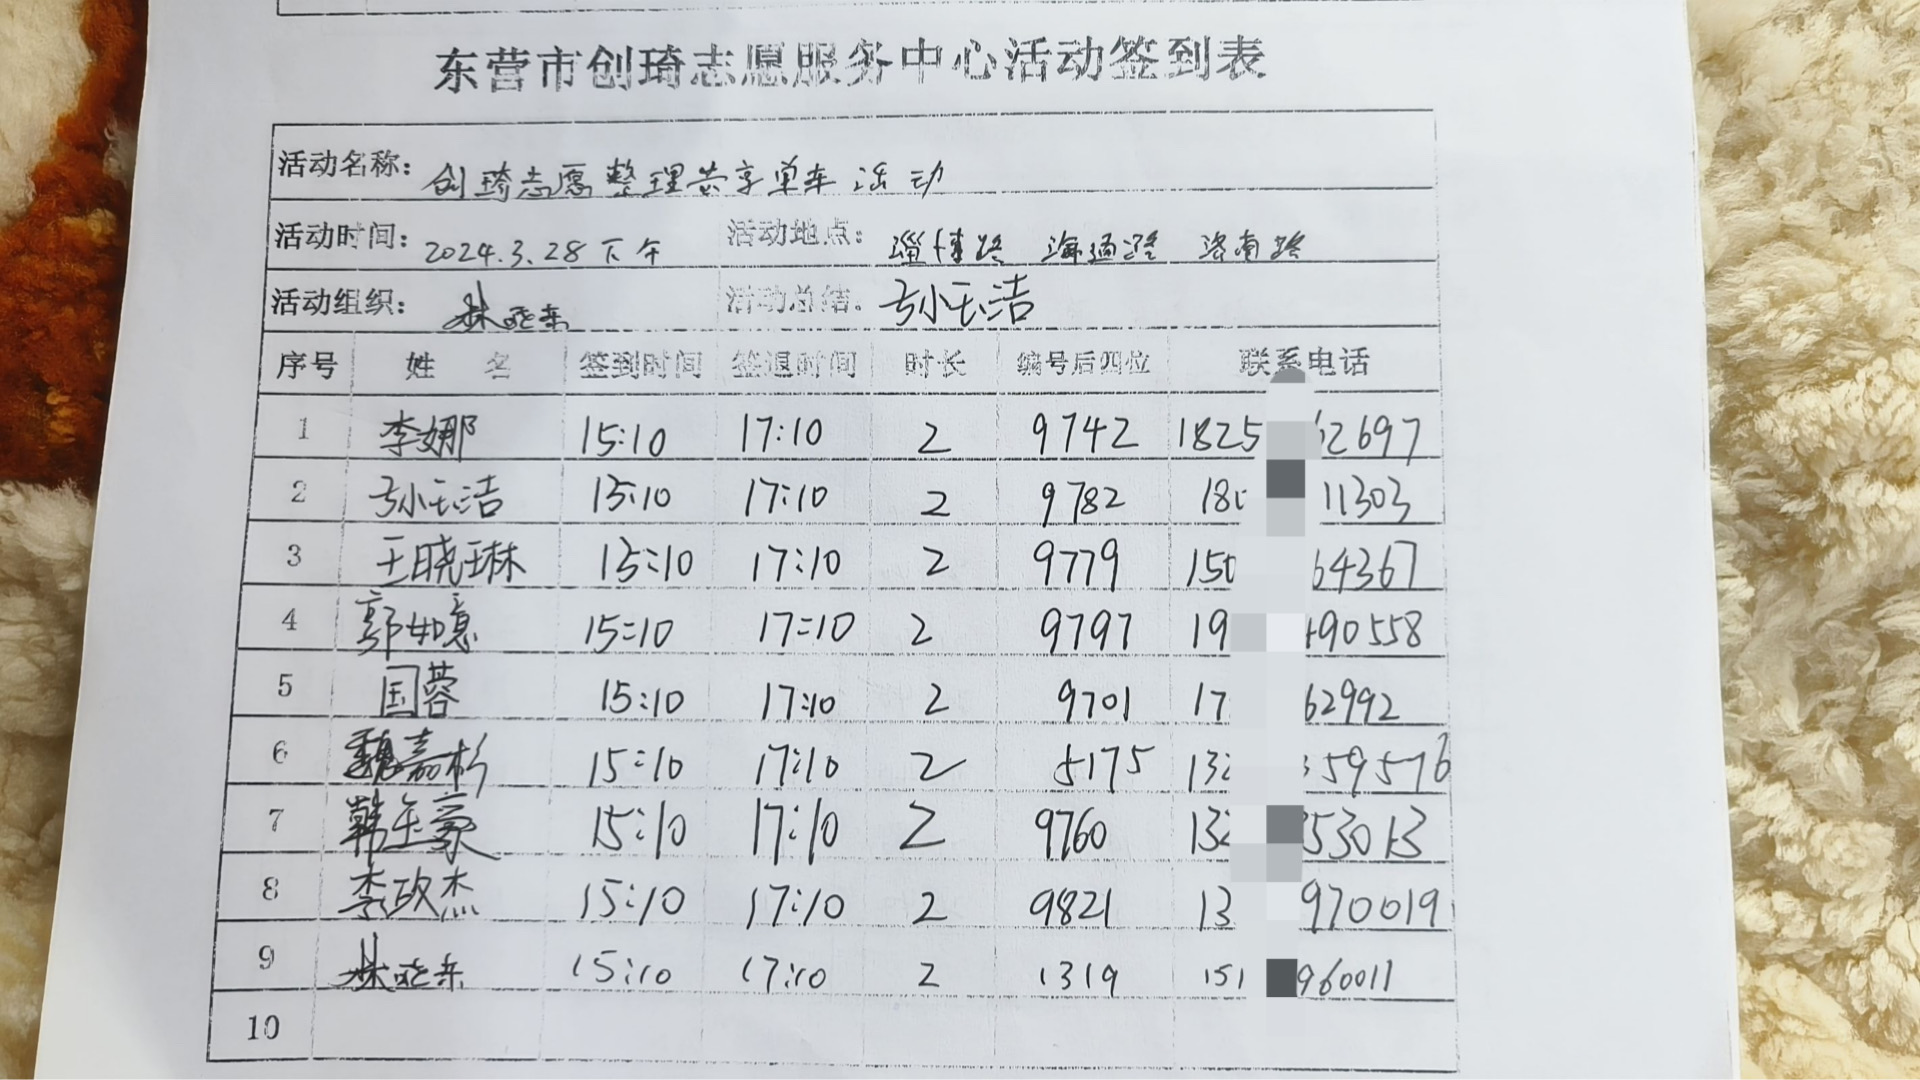 东营市创琦志愿服务中心活动签到表
活动名称: 创琦志愿整理共享单车活动
活动时间: 2024.3.28下午 活动地点: 淄博路 海通路 济南路
活动组织: 林晓东 活动总结: 孙玉洁
序号 姓 名 签到时间 签退时间 时长 编号后四位 联系电话
1 李娜 15:10 17:10 2 9742 1825 62697
2 孙玉洁 15:10 17:10 2 9782 18 11303
3 王晓琳 15:10 17:10 2 9779 150 64367
4 郭如意 15:10 17:10 2 9797 19 490558
5 国蓉 15:10 17:10 2 9701 17 62992
6 魏嘉杉 15:10 17:10 2 5175 132 359576
7 韩金豪 15:10 17:10 2 9760 132 53013
8 李政杰 15:10 17:10 2 9821 13 970019
9 林晓东 15:10 17:10 2 1319 151 960011
10